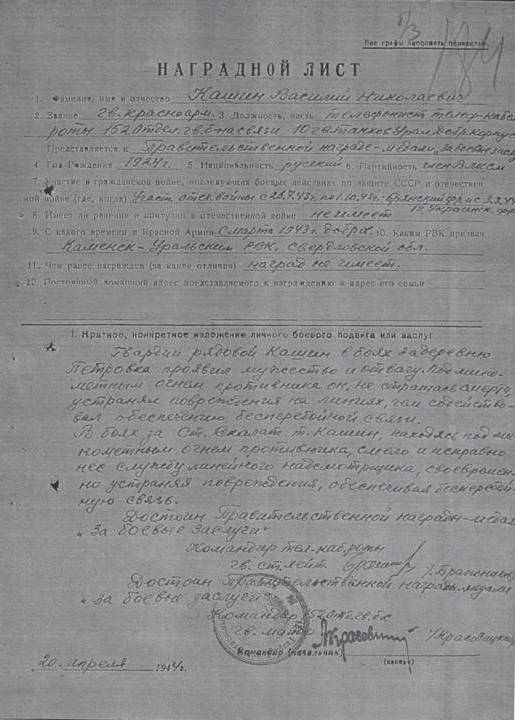 6/3
184
Все графы заполнять полностью
НАГРАДНОЙ ЛИСТ
1. Фамилия, имя и отчество Кашин Василий Николаевич
2. Звание гв. красноарм. 3. Должность, часть телефонист телеф-кабел
роты 152 отдел. гв. б-на связи 10 гв. танков Урал добр корпуса
Представляется к Правительственной награде-медали „За боевые заслу
4. Год Рождения 1924 г. 5. Национальность русский 6. Партийность член ВЛКСМ
7. Участие в гражданской войне, последующих боевых действиях по защите СССР и отечествен
ной войне (где, когда) Участ. отеч. войны с 27.7.43 по 1.10.43 г-брянский фр. и с 3.3.44
1й Украинск. фр.
8. Имеет ли ранения и контузии в отечественной войне не имеет
9. С какого времени в Красной Армии с марта 1943 г. добров 10. Каким РВК призван
Каменск-Уральским РВК, Свердловской обл.
11. Чем ранее награжден (за какие отличия) наград не имеет.
12. Постоянный домашний адрес представляемого к награждению и адрес его семьи
I. Краткое, конкретное изложение личного боевого подвига или заслуг
Гвардии рядовой Кашин в боях за деревню
Петровка проявил мужество и отвагу. Под мино-
метным огнем противника он, не страшась смерти,
устранял повреждения на линиях, чем содейство-
вал обеспечению бесперебойной связи.
В боях за Ст. Скалат т. Кашин, находясь под ми-
нометным огнем противника, смело и исправно
нес службу линейного надсмотрщика, своевремен-
но устраняя повреждения, обеспечивал бесперебой-
ную связь.
Достоин Правительственной награды-медали
„За боевые заслуги“
Командир тел-каб. роты
гв. ст. лейт.
Достоин Правительственной награды-медали
„За боевые заслуги“
Командир 152 отд. гв. бс
гв. майор /Краковецкий
Командир (начальник)
(подпись)
20. апреля 1944 г.